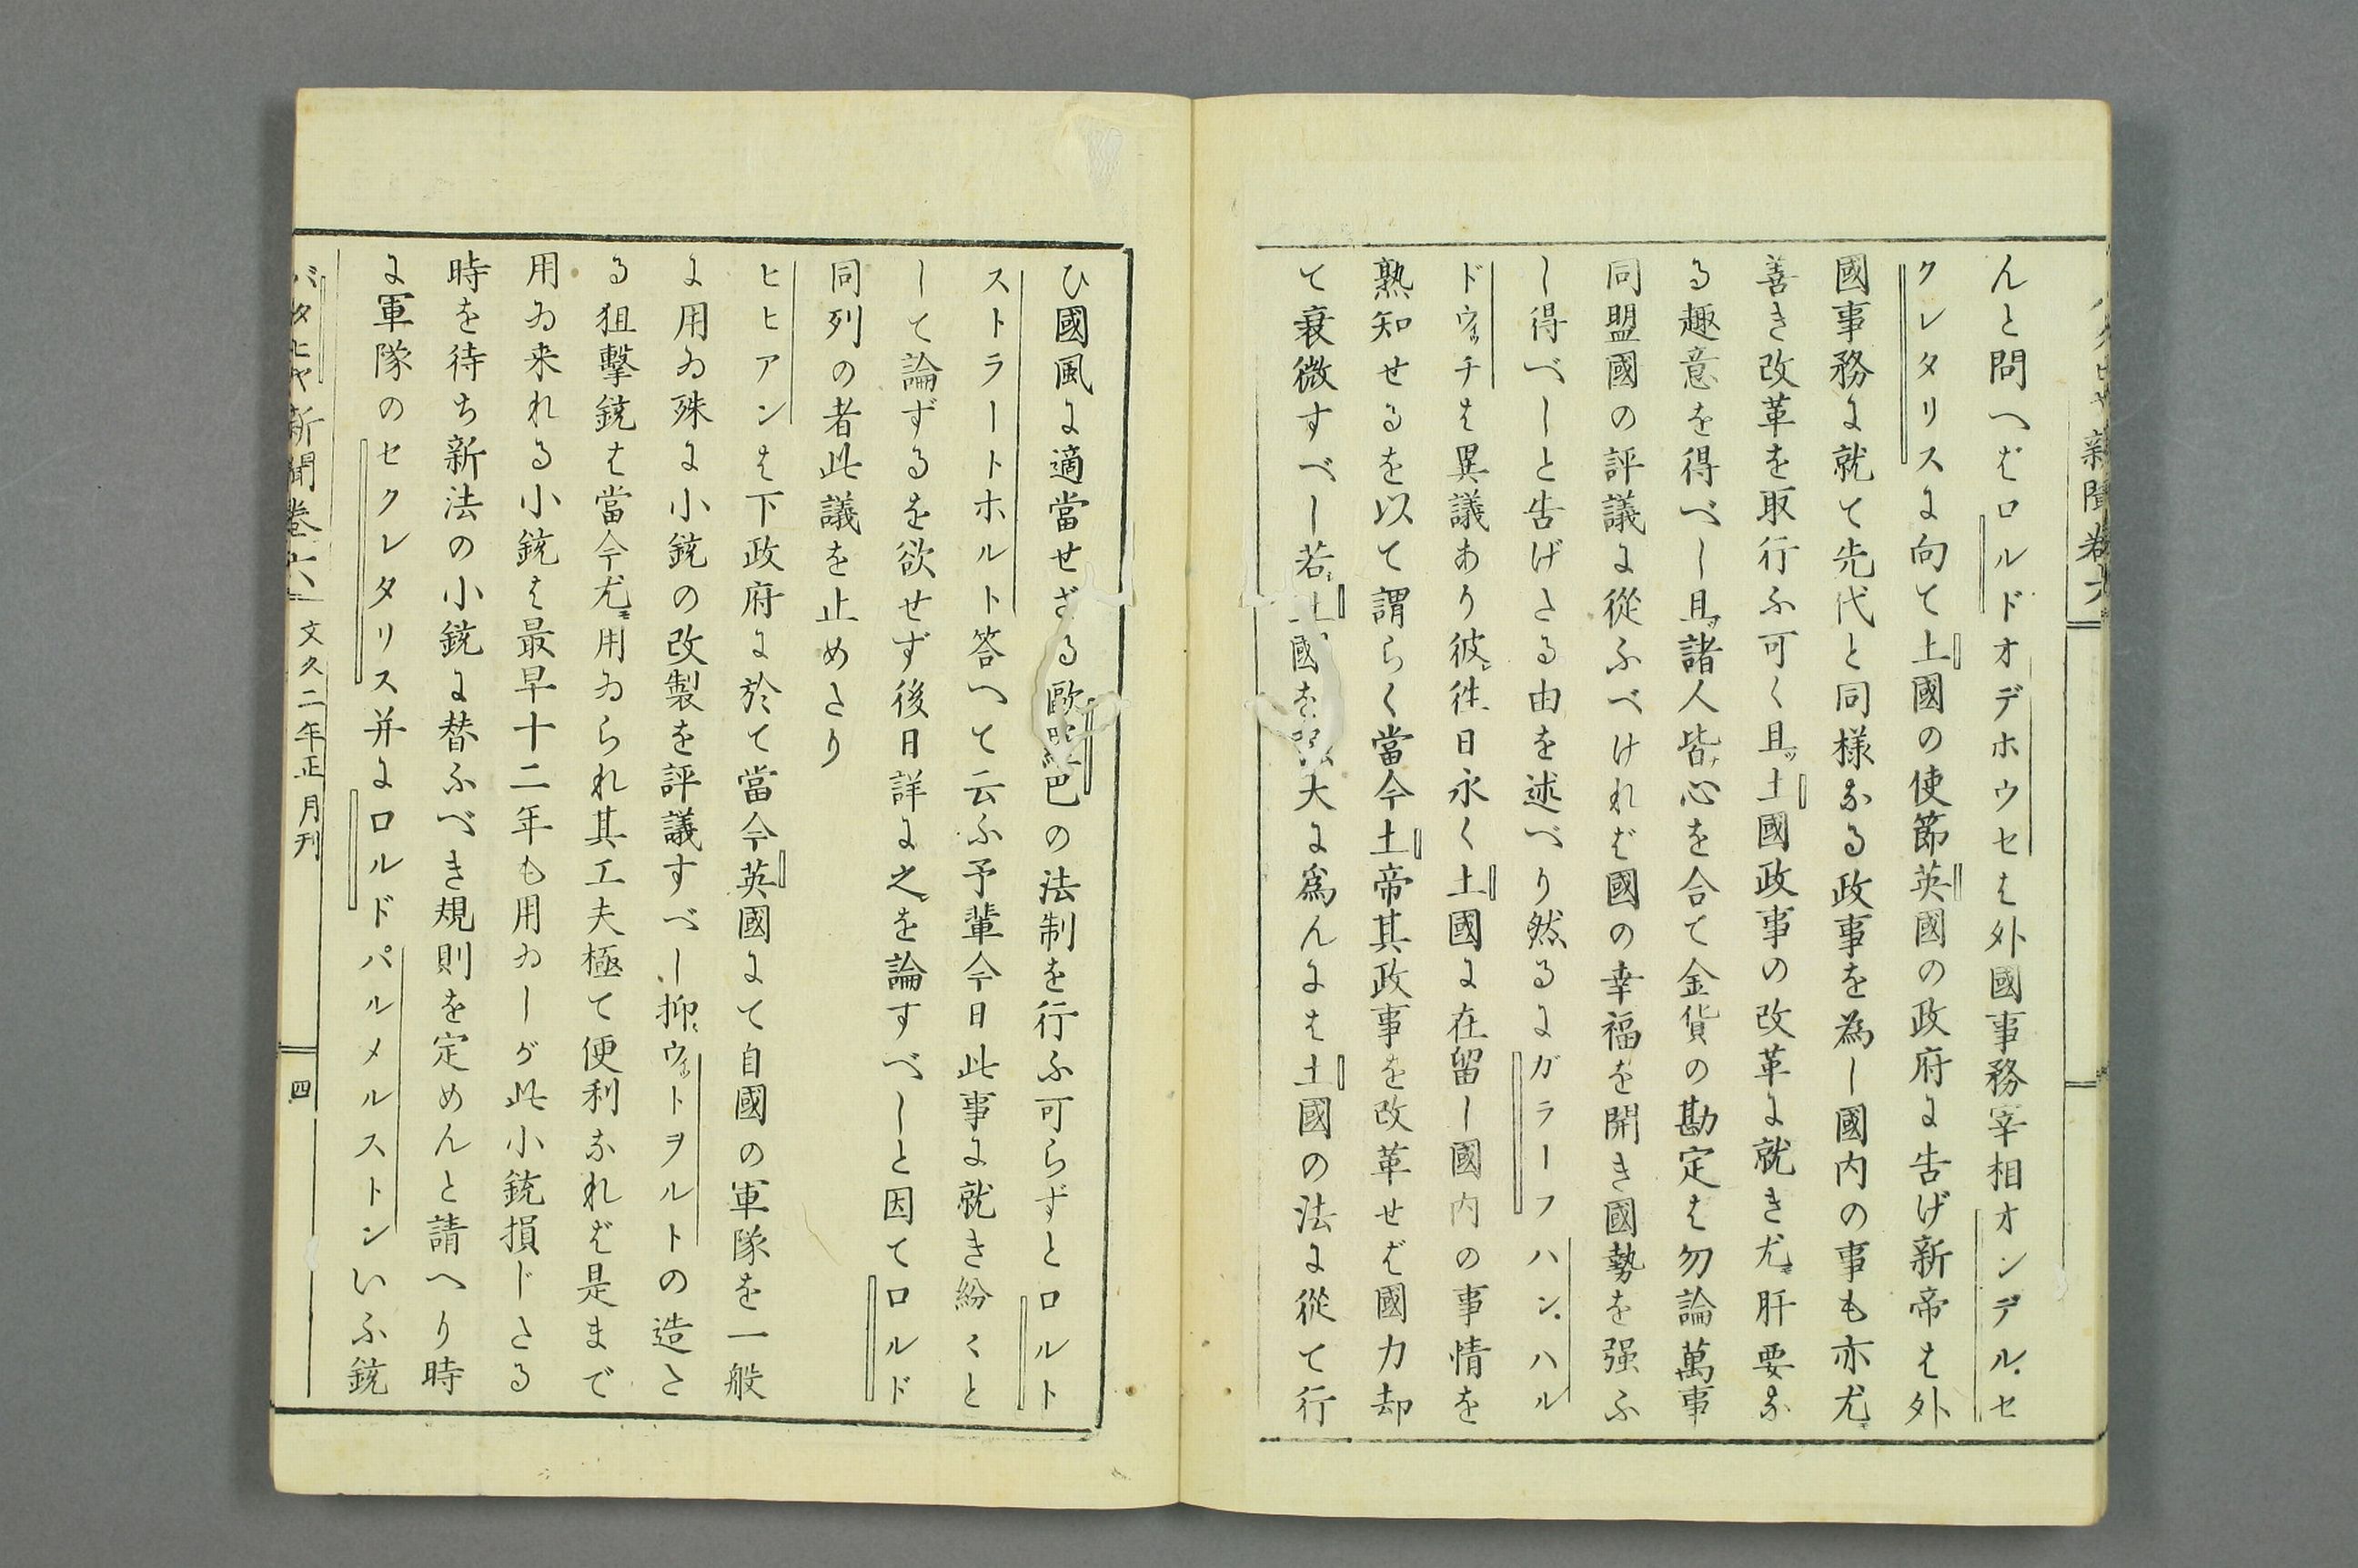 んと問へばロルドオデホウセは外國事務宰相オンデル.セ
クレタリスに向て土國の使節英國の政府に告げ新帝は外
國事務に就て先代と同様なる政事を為し國内の事も亦尤モ
善き改革を取行ふ可く且ツ土國政事の改革に就き尤モ肝要な
る趣意を得べし且ツ諸人皆ナ心を合て金貨の勘定は勿論萬事
同盟國の評議に從ふべければ國の幸福を開き國勢を强ふ
し得べしと告げたる由を述べり然るにガラーフハン.ハル
ドウ井ッチは異議あり彼レ往日永く土國に在留し國内の事情を
熟知せるを以て謂らく當今土帝其政事を改革せば國力却
て衰微すべし若シ土國を强大に爲んには土國の法に從て行
ひ國風に適當せざる歐羅巴の法制を行ふ可らずとロルト
ストラートホルト答へて云ふ予輩今日此事に就き紛〻と
して論ずるを欲せず後日詳に之レを論すべしと因てロルド
同列の者此議を止めたり
ヒヒアンは下政府に於て當今英國にて自國の軍隊を一般
に用ゐ殊に小銃の改製を評議すべし抑モウ井ットヲルトの造た
る狙擊銃は當今尤モ用ゐられ其工夫極て便利なれば是まで
用ゐ来れる小銃は最早十二年も用ゐしが此小銃損じたる
時を待ち新法の小銃に替ふべき規則を定めんと請へり時
に軍隊のセクレタリス并にロルドパルメルストンいふ銃
バタヒヤ新聞卷六 文久二年正月刊
四